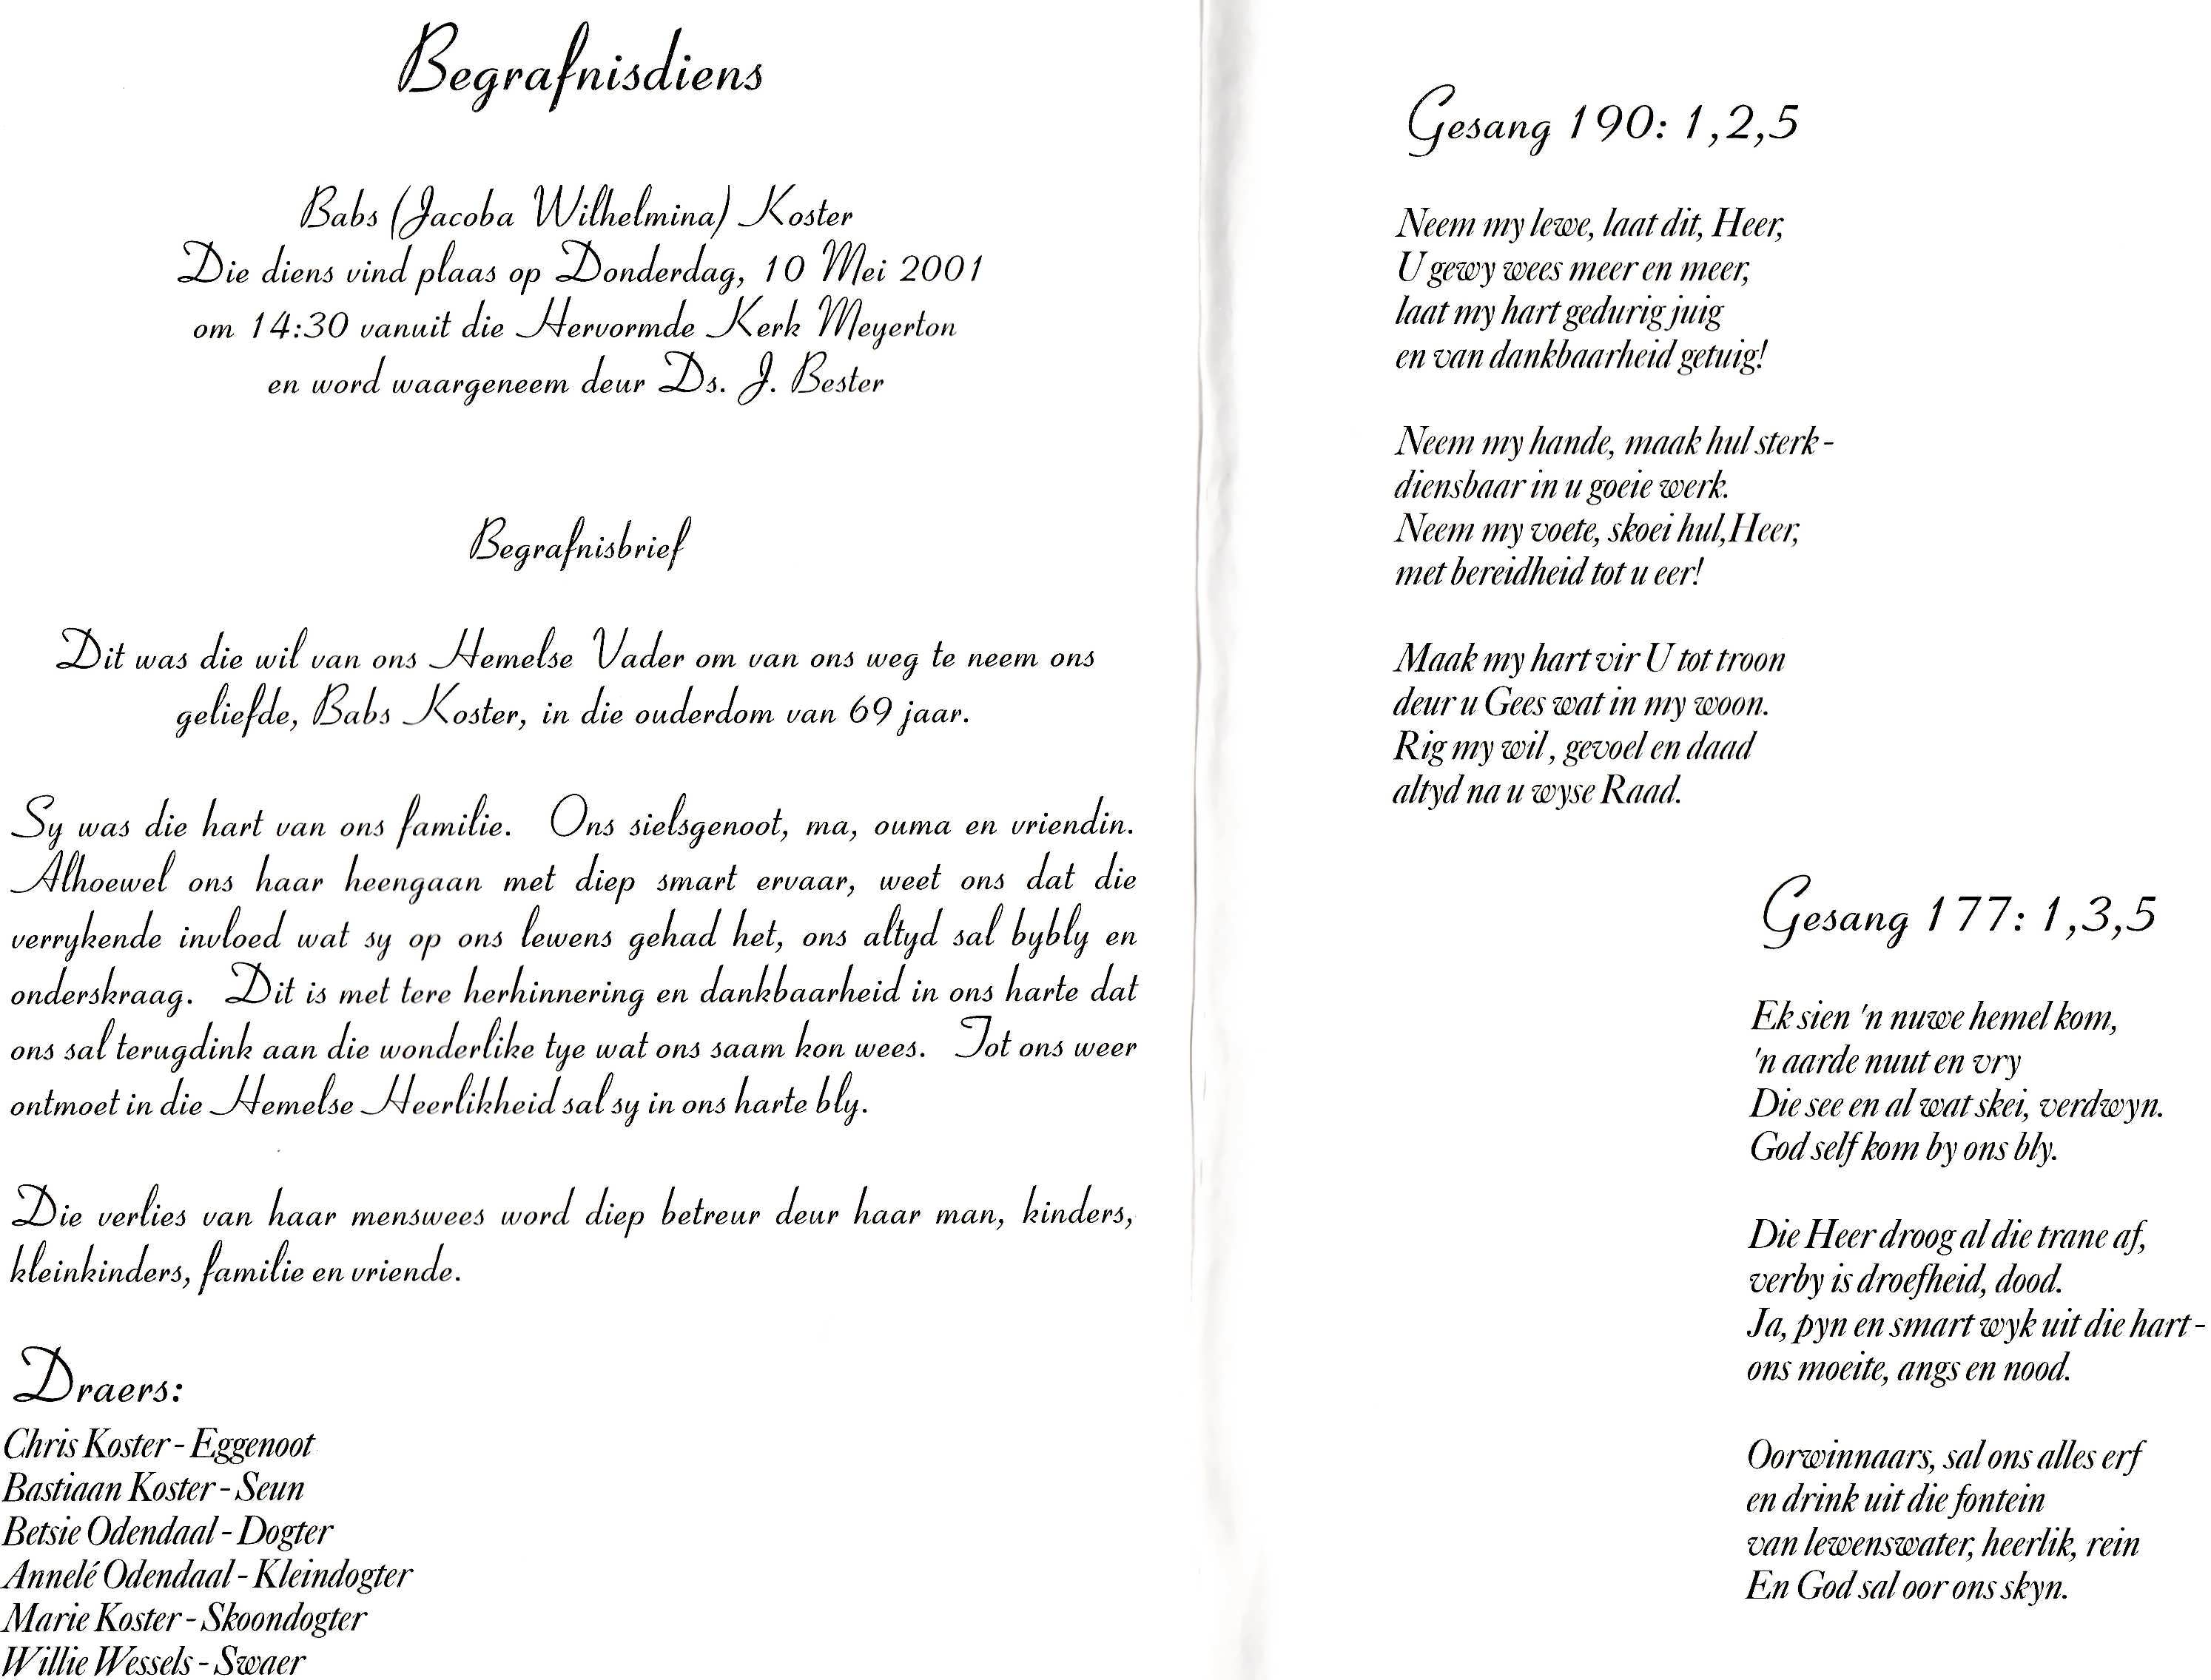 Begrafnisdiens
Babs (Jacoba Wilhelmina) Koster
Die diens vind plaas op Donderdag, 10 Mei 2001
om 14:30 vanuit die Hervormde Kerk Meyerton
en word waargeneem deur Ds. J. Bester
Begrafnisbrief
Dit was die wil van ons Hemelse Vader om van ons weg te neem ons
geliefde, Babs Koster, in die ouderdom van 69 jaar.
Sy was die hart van ons familie. Ons sielsgenoot, ma, ouma en vriendin.
Alhoewel ons haar heengaan met diep smart ervaar, weet ons dat die
verrykende invloed wat sy op ons lewens gehad het, ons altyd sal bybly en
onderskraag. Dit is met tere herhinnering en dankbaarheid in ons harte dat
ons sal terugdink aan die wonderlike tye wat ons saam kon wees. Tot ons weer
ontmoet in die Hemelse Heerlikheid sal sy in ons harte bly.
Die verlies van haar menswees word diep betreur deur haar man, kinders,
kleinkinders, familie en vriende.
Draers:
Chris Koster - Eggenoot
Bastiaan Koster - Seun
Betsie Odendaal - Dogter
Annelé Odendaal - Kleindogter
Marie Koster - Skoondogter
Willie Wessels - Swaer
Gesang 190: 1,2,5
Neem my lewe, laat dit, Heer,
U gewy wees meer en meer,
laat my hart gedurig juig
en van dankbaarheid getuig!
Neem my hande, maak hul sterk -
diensbaar in u goeie werk.
Neem my voete, skoei hul,Heer,
met bereidheid tot u eer!
Maak my hart vir U tot troon
deur u Gees wat in my woon.
Rig my wil , gevoel en daad
altyd na u wyse Raad.
Gesang 177: 1,3,5
Ek sien 'n nuwe hemel kom,
'n aarde nuut en vry
Die see en al wat skei, verdwyn.
God self kom by ons bly.
Die Heer droog al die trane af,
verby is droefheid, dood.
Ja, pyn en smart wyk uit die hart -
ons moeite, angs en nood.
Oorwinnaars, sal ons alles erf
en drink uit die fontein
van lewenswater, heerlik, rein
En God sal oor ons skyn.